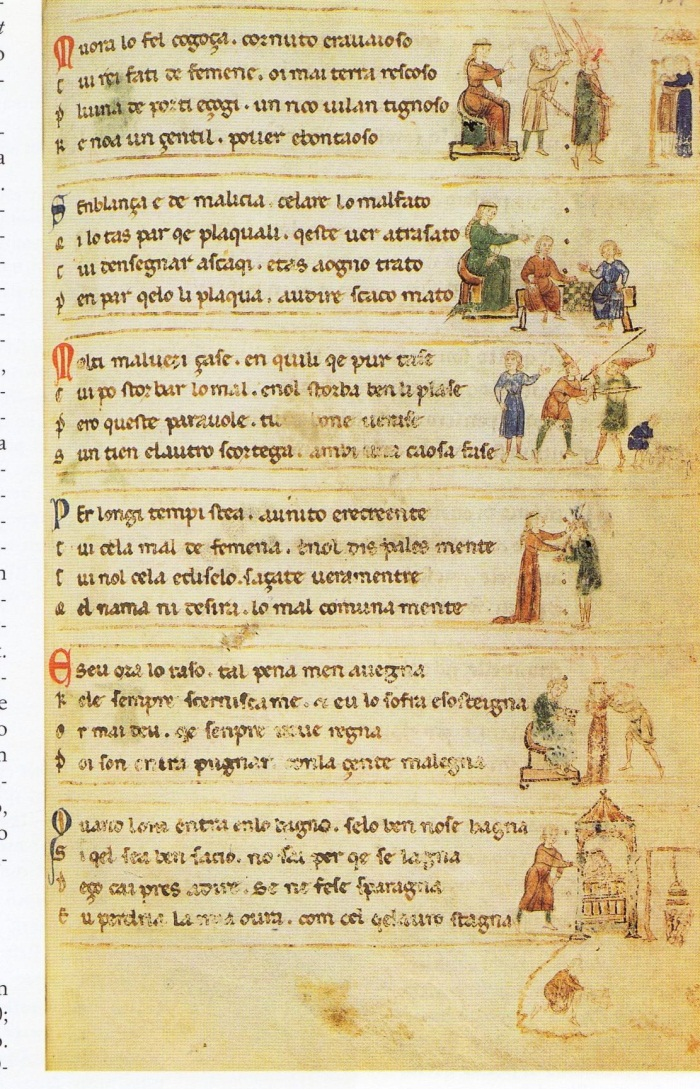 Muora lo fel cogoça. cornuto erauaioso
c ui rei fati de femene. oi mai terra rescoso
p luina de porti eçogi. un rico uilan tignoso
k e noa un çentil. pouer ebontaoso
S Enblança e de malicia. celare lo malfato
e i lo tas par qe plaquali. qeste uer atrasato
c ui densegnar ascaqi. etas aogno trato
p en par qelo li plaqua. audire scaco mato
Molti maluezi çase. en quili qe pur
c ui po storbar lo mal. enol storba ben li plase
p ero queste parauole. tu bone
s un tien elautro scortega. ambi una caosa fase
P Er longi tempi stea. aunito ecreente
c ui cela mal de femena. enol dis pales mente
c ui nol cela ediselo. saçate ueramentre
e el nama ni desira. lo mal comuna mente
E seu ora lo taso. tal pena men auegna
k ele sempre scernisca me. e eu lo sofra esosteigna
o r mai deu. qe senpre regna
p oi son pugnar conla çente malegna
Q uano lom entra enlo bagno. selo ben nose bagna
S i qel sea ben sacio. no sai per qe se lagna
d eço cai pres adire. se ne fese sparagna
e u perdria la mia oura. com cel qelauro stagna